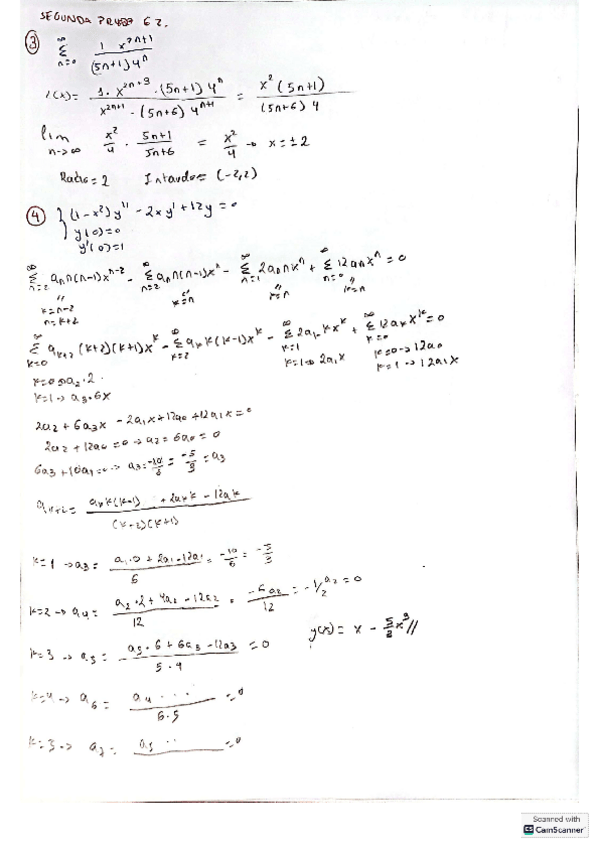 SEGUNDA PRUEBA G2.
③ ∞ Σ n=0 1 x^{2n+1} / (5n+1) 4^n
r(x) = 1 · x^{2n+3} · (5n+1) 4^n / x^{2n+1} · (5n+6) 4^{n+1} = x² (5n+1) / (5n+6) 4
lim n→∞ x²/4 · 5n+1 / 5n+6 = x²/4 → x = ±2
Radio = 2 Intervalo = (-2,2)
④ { (1-x²) y'' - 2x y' + 12y = 0
y(0) = 0
y'(0) = 1
∞ Σ n=2 a_n n(n-1) x^{n-2} - ∞ Σ n=2 a_n n(n-1) x^n - ∞ Σ n=1 2a_n n x^n + ∞ Σ n=0 12 a_n x^n = 0
k=n-2 k=n k=n k=n
n=k+2
∞ Σ k=0 a_{k+2} (k+2)(k+1) x^k - ∞ Σ k=2 a_k k(k-1) x^k - ∞ Σ k=1 2a_k k x^k + ∞ Σ k=0 12 a_k x^k = 0
k=0 → a_2 · 2 k=1 → 2a_1 x k=0 → 12a_0
k=1 → a_3 · 6x k=1 → 12a_1 x
2a_2 + 6a_3 x - 2a_1 x + 12a_0 + 12a_1 x = 0
2a_2 + 12a_0 = 0 → a_2 = 6a_0 = 0
6a_3 + 10a_1 = 0 → a_3 = -10/6 = -5/3 = a_3
a_{k+2} = a_k k(k-1) + 2a_k k - 12a_k / (k+2)(k+1)
k=1 → a_3 = a_1 · 0 + 2a_1 - 12a_1 / 6 = -10/6 = -5/3
k=2 → a_4 = a_2 · 2 + 4a_2 - 12a_2 / 12 = -6a_2 / 12 = -1/2 a_2 = 0
y(x) = x - 5/3 x³ //
k=3 → a_5 = a_3 · 6 + 6a_3 - 12a_3 / 5·4 = 0
k=4 → a_6 = a_4 ... / 6·5 = 0
k=5 → a_7 = a_5 ... = 0
Scanned with
CamScanner